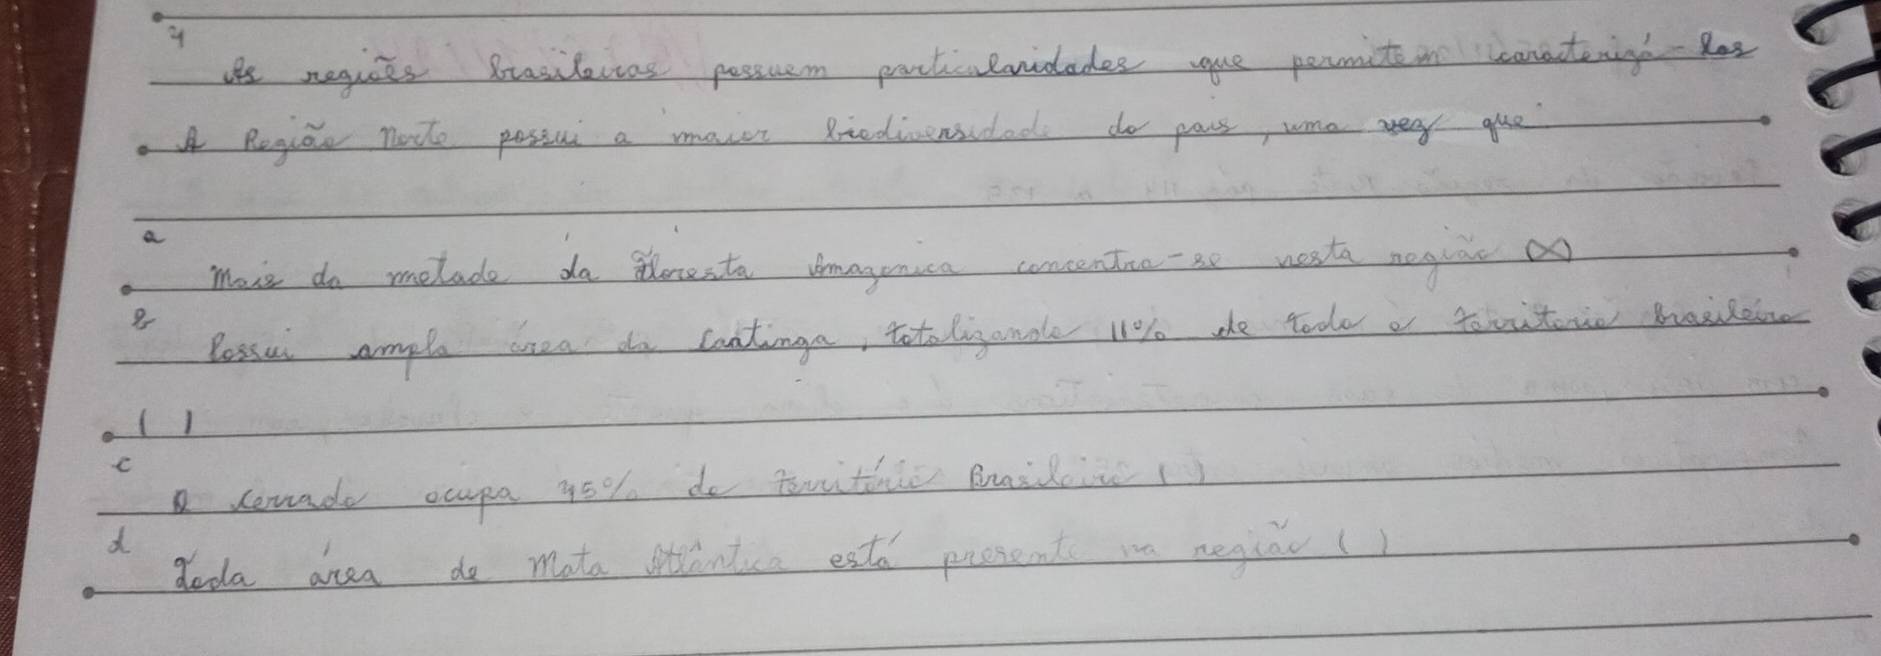 4
As regiões brasileiras possuem particularidades que permitem caracterizá-las
A Região Norte possui a maior biodiversidade do país, uma vez que
a
Mais da metade da Floresta Amazonica concentra-se nesta região (X)
b
Possui ampla área da Caatinga, totalizando 11% de todo o território brasileiro
( )
c
O cerrado ocupa 45% do território Brasileiro ( )
d
Toda área de Mata Atlântica está presente na região ( )